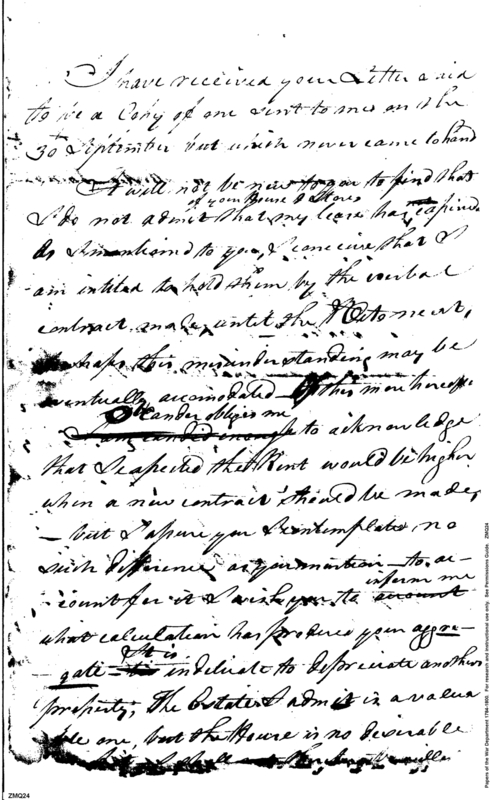 I have received your Letter said
to be a Copy of one sent to me on the
30th September but which never came to hand
It will not be new to you to find that
of your House & Stores
I do not admit that my lease has expired
As I mentioned to you, I conceive that I
am intitled to hold them by the verbal
contract made, until the
perhaps this misunderstanding may be
eventually accomodated of this more hereafter
Candor obliges me
I am candid enough to acknowledge
that I expected the Rent would be higher
when a new contract should be made,
– but I assure you I contemplated no
such difference as you mention – to ac-
inform me
count for it I wish you to account
what calculation has produced your aggre-
It is
gate – indelicate to depreciate anothers
property, The Estate I admit is a valua
ble one, but the House is no desirable
I shall
ZMQ24
Papers of the War Department 1784-1800. For research and instructional use only. See Permissions Guide. ZMQ24